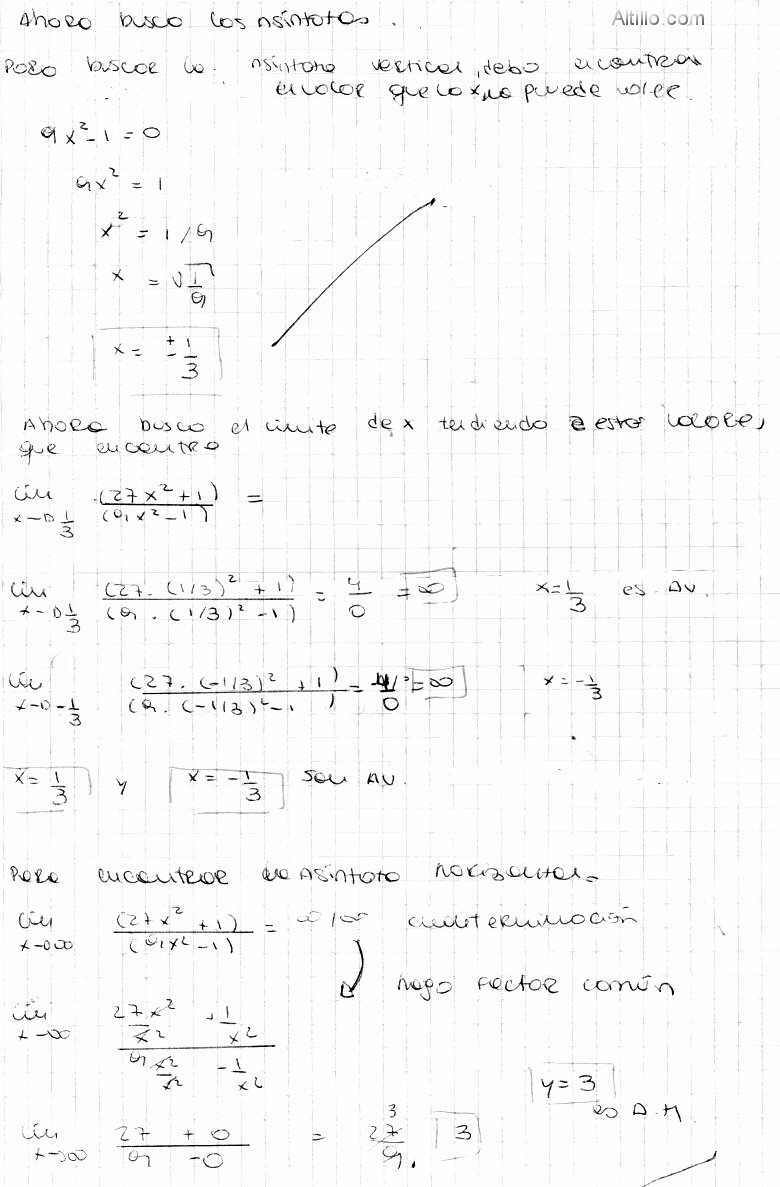 Ahora busco las Asíntotas.
Altillo.com
Para buscar la asíntota vertical, debo encontrar
el valor que la x no puede valer.
9x² - 1 = 0
9x² = 1
x² = 1/9
x = √1/9
x = ± 1/3
Ahora busco el límite de x tendiendo a estos valores,
que encontro
lim x→1/3 (27x² + 1)/(9x² - 1) =
lim x→1/3 (27. (1/3)² + 1)/(9. (1/3)² - 1) = 4/0 = ∞ x = 1/3 es AV.
lim x→-1/3 (27. (-1/3)² + 1)/(9. (-1/3)² - 1) = 4/0 = ∞ x = -1/3
x = 1/3 y x = -1/3 son AV.
Para encontrar la Asíntota horizontal.
lim x→∞ (27x² + 1)/(9x² - 1) = ∞/∞ indeterminación
hago factor común
lim x→∞ (27x²/x² + 1/x²)/(9x²/x² - 1/x²)
y = 3
es A.H
lim x→∞ (27 + 0)/(9 - 0) = 27/9 3 3